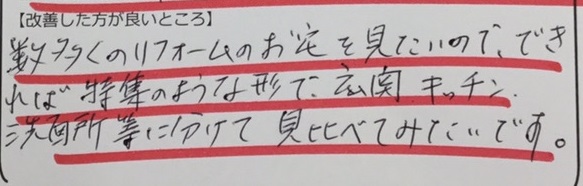 【改善した方が良いところ】
数多くのリフォームのお宅を見たいので、でき
れば特集のような形で、玄関、キッチン、
洗面所等に分けて見比べてみたいです。